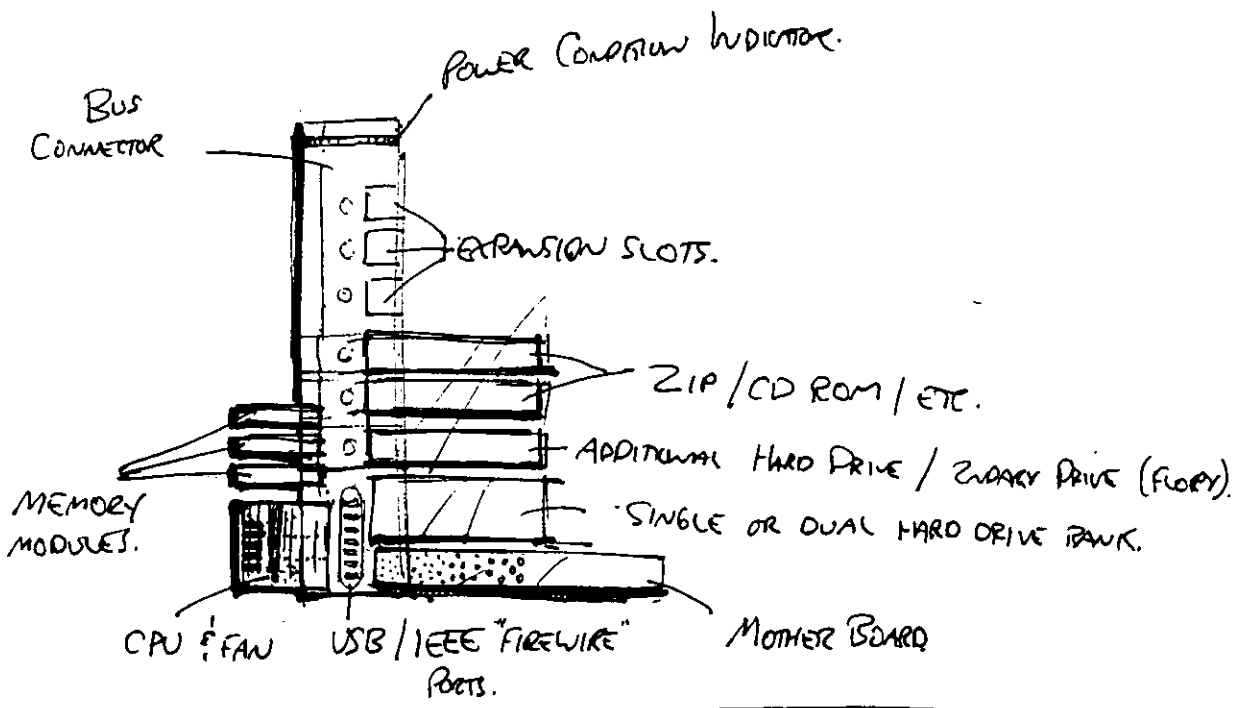 POWER CONDITION INDICATOR.
BUS
CONNECTOR
EXPANSION SLOTS.
ZIP / CD ROM / ETC.
ADDITIONAL HARD DRIVE / 2NDARY DRIVE (FLOPY).
SINGLE OR DUAL HARD DRIVE BANK.
MEMORY
MODULES.
CPU & FAN
USB / IEEE "FIREWIRE"
PORTS.
MOTHER BOARD